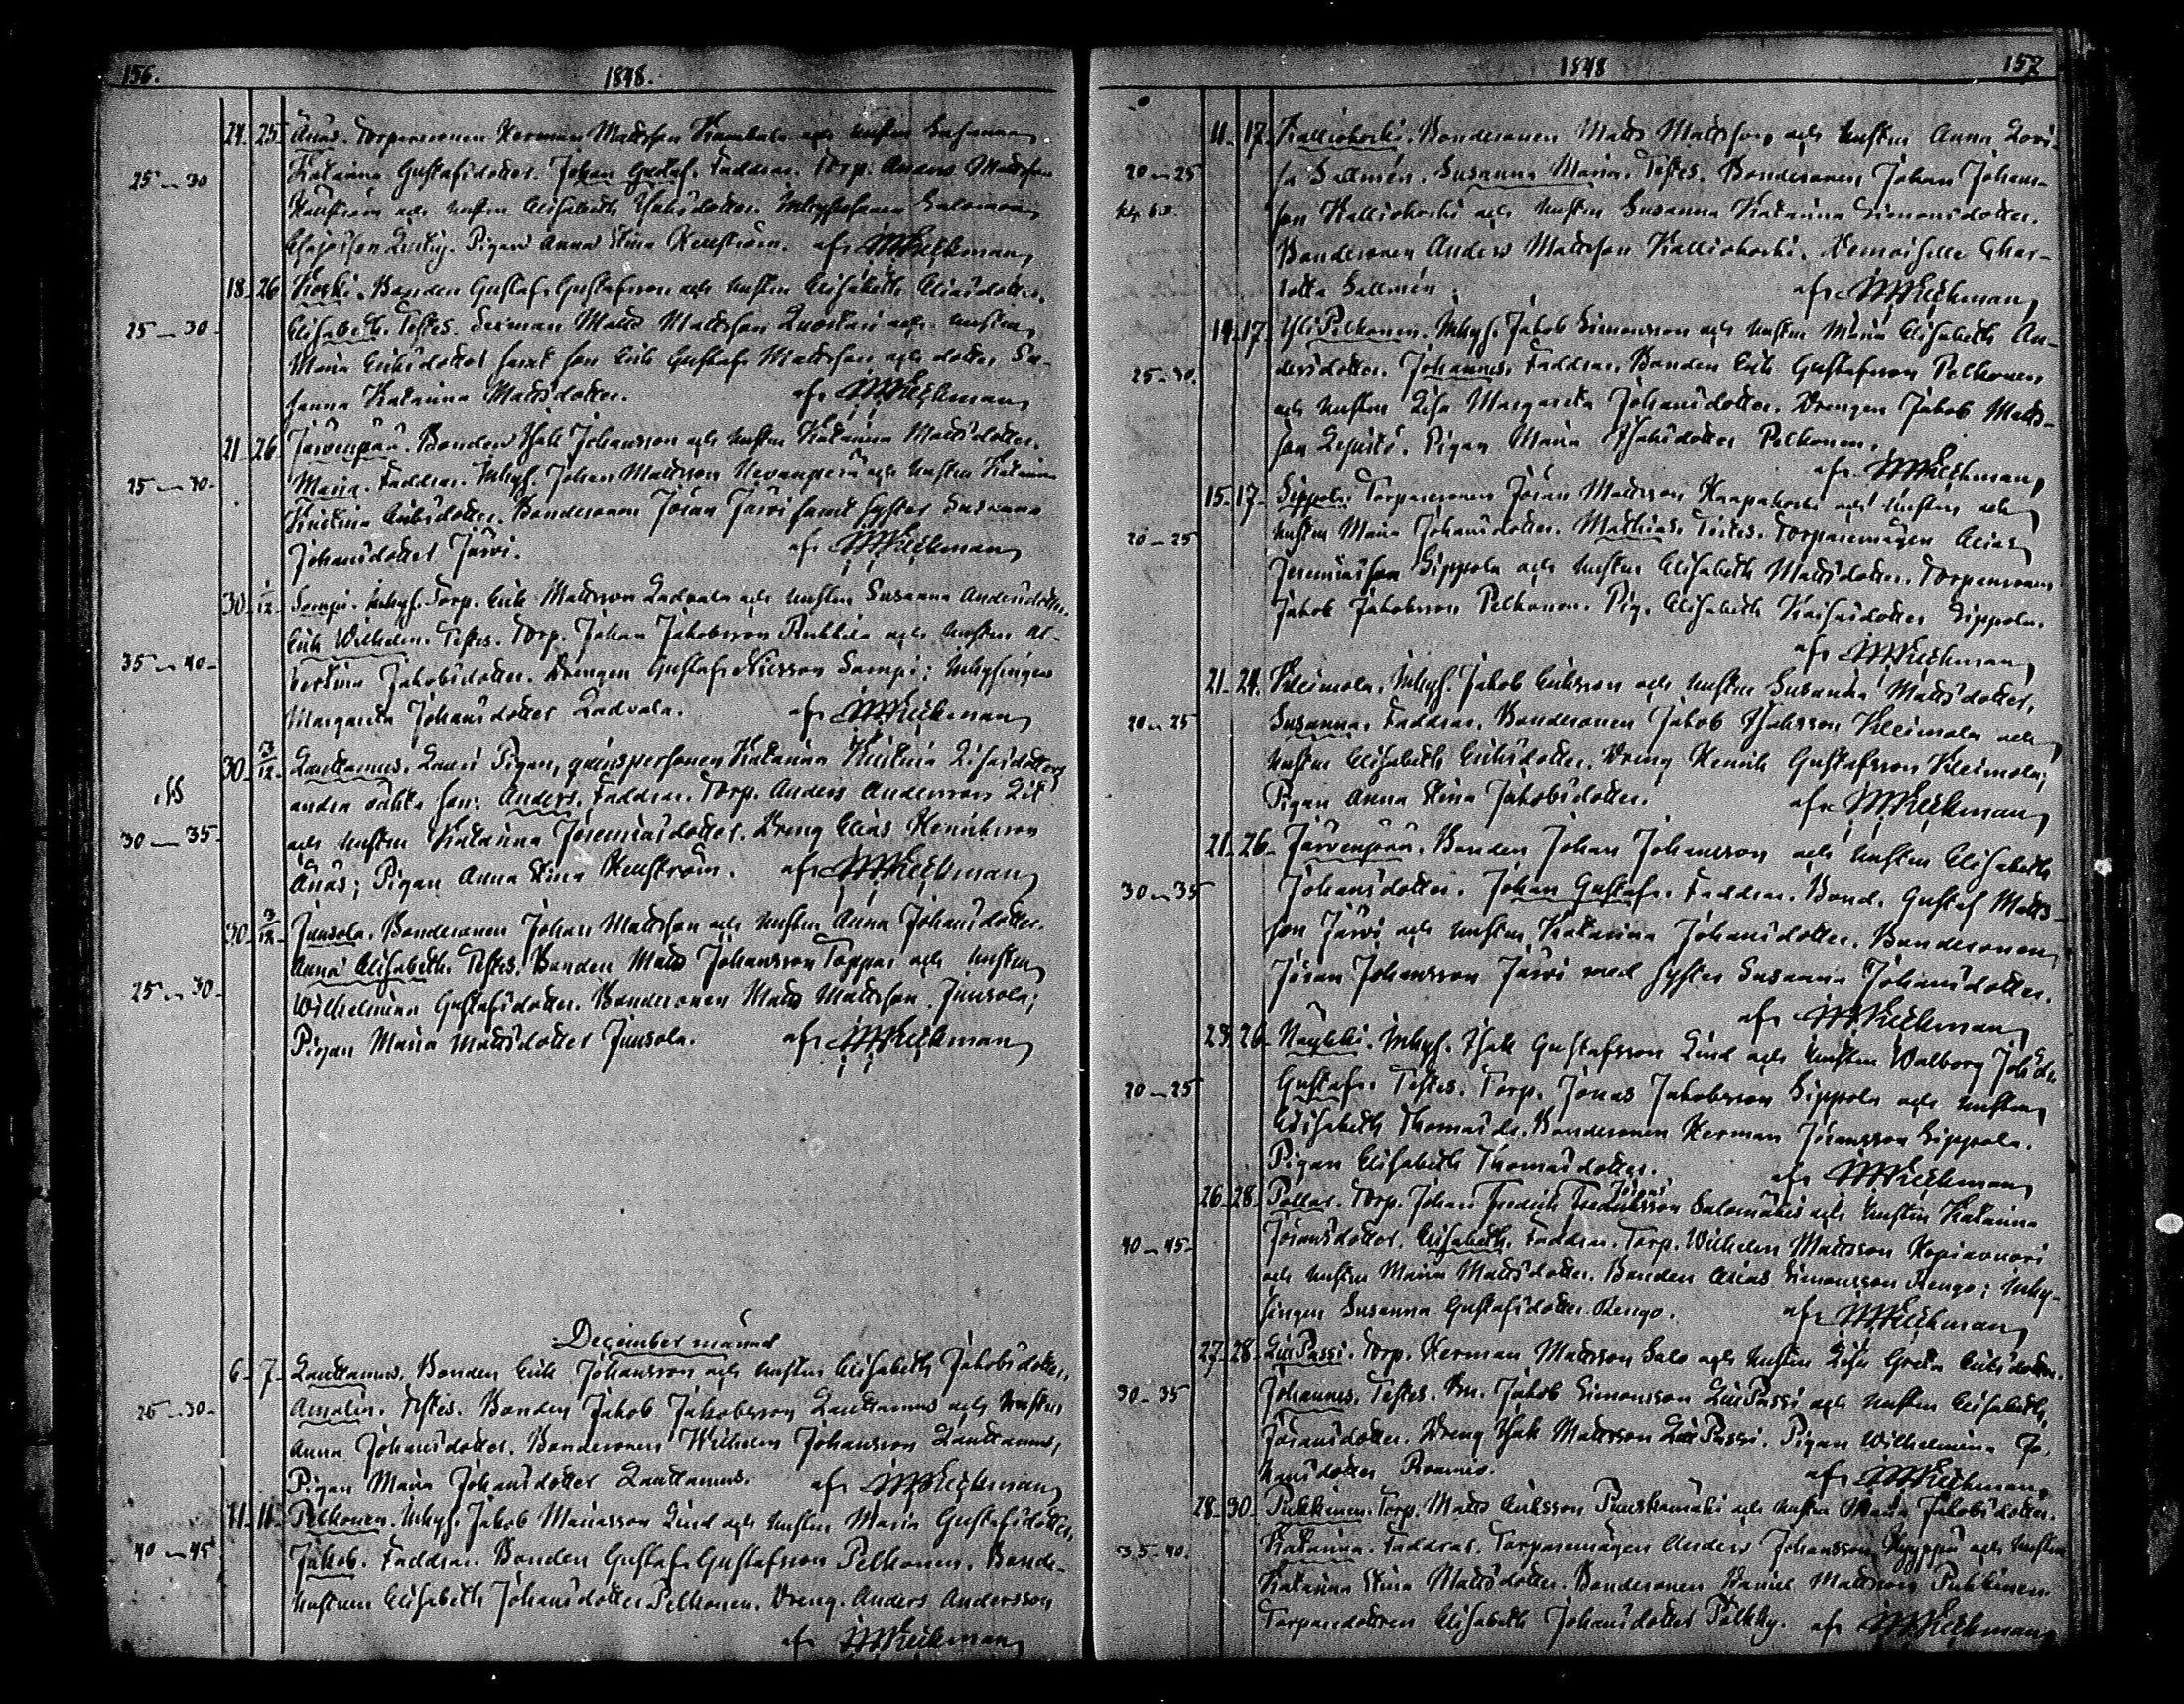 156.
1848.
24. 25. Änäs. Torparesonen Herman Mattsson och hustrun Susanna
25 — 30 Katarina Gustafsdotter. Johan Gustaf. Faddrar. Torp. Anders Mattsson
och hustrun Elisabeth Isaksdotter. Inhysesonen Salomon
Pigan Anna Stina Kenström. af
18. 26. Koski. Bonden Gustaf Gustafsson och hustrun Elisabeth Eliasdotter.
25 — 30. Elisabeth. Testes. Sexman Matts Mattsson och hustrun
Maria Eriksdotter samt son Erik Gustaf Mattsson och dotter Su-
sanna Katarina Mattsdotter. af
21. 26. Järvenpää. Bonden Isak Johansson och hustrun Katarina Mattsdotter.
25 — 30. Maria. Faddrar. Inhys. Johan Mattsson Nevanperä och hustrun Katarina
Kristina Eriksdotter. Bondesonen Jöran Järvi samt syster Susanna
Johansdotter Järvi. af
30. 1/12. Sompi. Inhys. Torp. Erik Mattsson Ladvala och hustrun Susanna Andersdotter.
Erik Wilhelm. Testes. Torp. Johan Jakobsson och hustrun Al-
35 — 40. bertina Jakobsdotter. Drengen Gustaf Nilsson Sompi; Inhysingen
Margareta Johansdotter Ladvala. af
30. 3/12. Lauttamus. Pigan, qvinspersonen Katarina Kristina
andra oäkta son: Anders. Faddrar. Torp. Anders Andersson
30 — 35. och hustrun Katarina Jeremiasdotter. Dreng Elias Henriksson
Änäs; Pigan Anna Stina Kenström. af
30. 3/12. Junsola. Bondesonen Johan Mattsson och hustrun Anna Johansdotter.
Anna Elisabeth. Testes. Bonden Matts Johansson Toppar och hustrun
25 — 30. Wilhelmina Gustafsdotter. Bondesonen Matts Mattsson Junsola;
Pigan Maria Mattsdotter Junsola. af
December månad
6. 7. Lauttamus. Bonden Erik Johansson och hustrun Elisabeth Jakobsdotter.
25 — 30. Amalia. Testes. Bonden Jakob Jakobsson Lauttamus och hustrun
Anna Johansdotter. Bondesonen Wilhelm Johansson Lauttamus,
Pigan Maria Johansdotter Lauttamus. af
11. 11. Pelkonen. Inhys. Jakob Mariasson Lind och hustrun Maria Gustafsdotter,
40 — 45 Jakob. Faddrar. Bonden Gustaf Gustafsson Pelkonen. Bonde-
hustrun Elisabeth Johansdotter Pelkonen. Dreng. Anders Andersson
af
1848
157
11. 17. Kalliokoski. Bondesonen Matts Mattsson och hustrun Anna Lovi-
20 — 25 sa Sallmén. Susanna Maria. Testes. Bondesonen Johan Johans-
son Kalliokoski och hustrun Susanna Katarina Simonsdotter.
Bondesonen Anders Mattsson Kalliokoski. Demoiselle Char-
lotta Sallmén. af
14. 17. Yli Pelkonen. Inhys. Jakob Simonsson och hustrun Maria Elisabeth An-
25 — 30. dersdotter. Johannes. Faddrar. Bonden Erik Gustafsson Pelkonen
och hustrun Lisa Margareta Johansdotter. Drengen Jakob Matts-
son Lepistö. Pigan Maria Isaksdotter Pelkonen.
af
15. 17. Sippola. Torparesonen Jöran Mattsson Haapakoski och hustrun och
20 — 25 hustrun Maria Johansdotter. Mathias. Testes. Torparemågen Elias
Jeremiasson Sippola och hustrun Elisabeth Mattsdotter. Torparesonen
Jakob Jakobsson Pelkonen. Pig. Elisabeth Sippola.
af
21. 24. Kleimola. Inhys. Jakob Eriksson och hustrun Susanna Mattsdotter.
20 — 25 Susanna. Faddrar. Bondesonen Jakob Isaksson Kleimola och
hustrun Elisabeth Eriksdotter. Dreng Henrik Gustafsson Kleimola;
Pigan Anna Stina Jakobsdotter. af
21. 26. Järvenpää. Bonden Johan Johansson och hustrun Elisabeth
30 — 35 Johansdotter. Johan Gustaf. Faddrar. Bond. Gustaf Matts-
son Järvi och hustrun Katarina Johansdotter. Bondesonen
Jöran Johansson Järvi med syster Susanna Johansdotter.
af
23. 26. Inhys. Isak Gustafsson Lind och hustrun Walborg
20 — 25 Gustaf. Testes. Torp. Jonas Jakobsson Sippola och hustrun
Elisabeth Thomasdr. Bondesonen Herman Jöransson Sippola.
Pigan Elisabeth Thomasdotter. af
26. 28. Pollar. Torp. Johan Fredrik Salomäki och hustrun Katarina
40 — 45 Jöransdotter. Elisabeth. Faddrar. Torp. Wilhelm Mattsson
och hustrun Maria Mattsdotter. Bonden Elias Simonsson Rengo; Inhy-
singen Susanna Gustafsdotter Rengo. af
27. 28. Torp. Herman Mattsson Salo och hustrun Lisa Greta Eriksdotter.
30 — 35 Johannes. Testes. Bn. Jakob Simonsson och hustrun Elisabeth
Jöransdotter. Dreng Isak Mattsson Pigan Wilhelmina Jo-
hansdotter af
28. 30. Pukkinen. Torp. Matts Eriksson och hustrun Maria Jakobsdotter.
35 — 40. Katarina. Faddrar. Torparemågen Anders Johansson och hustrun
Katarina Stina Mattsdotter. Bondesonen Daniel Mattsson Pukkinen.
Torparedottren Elisabeth Johansdotter Pölkky. af